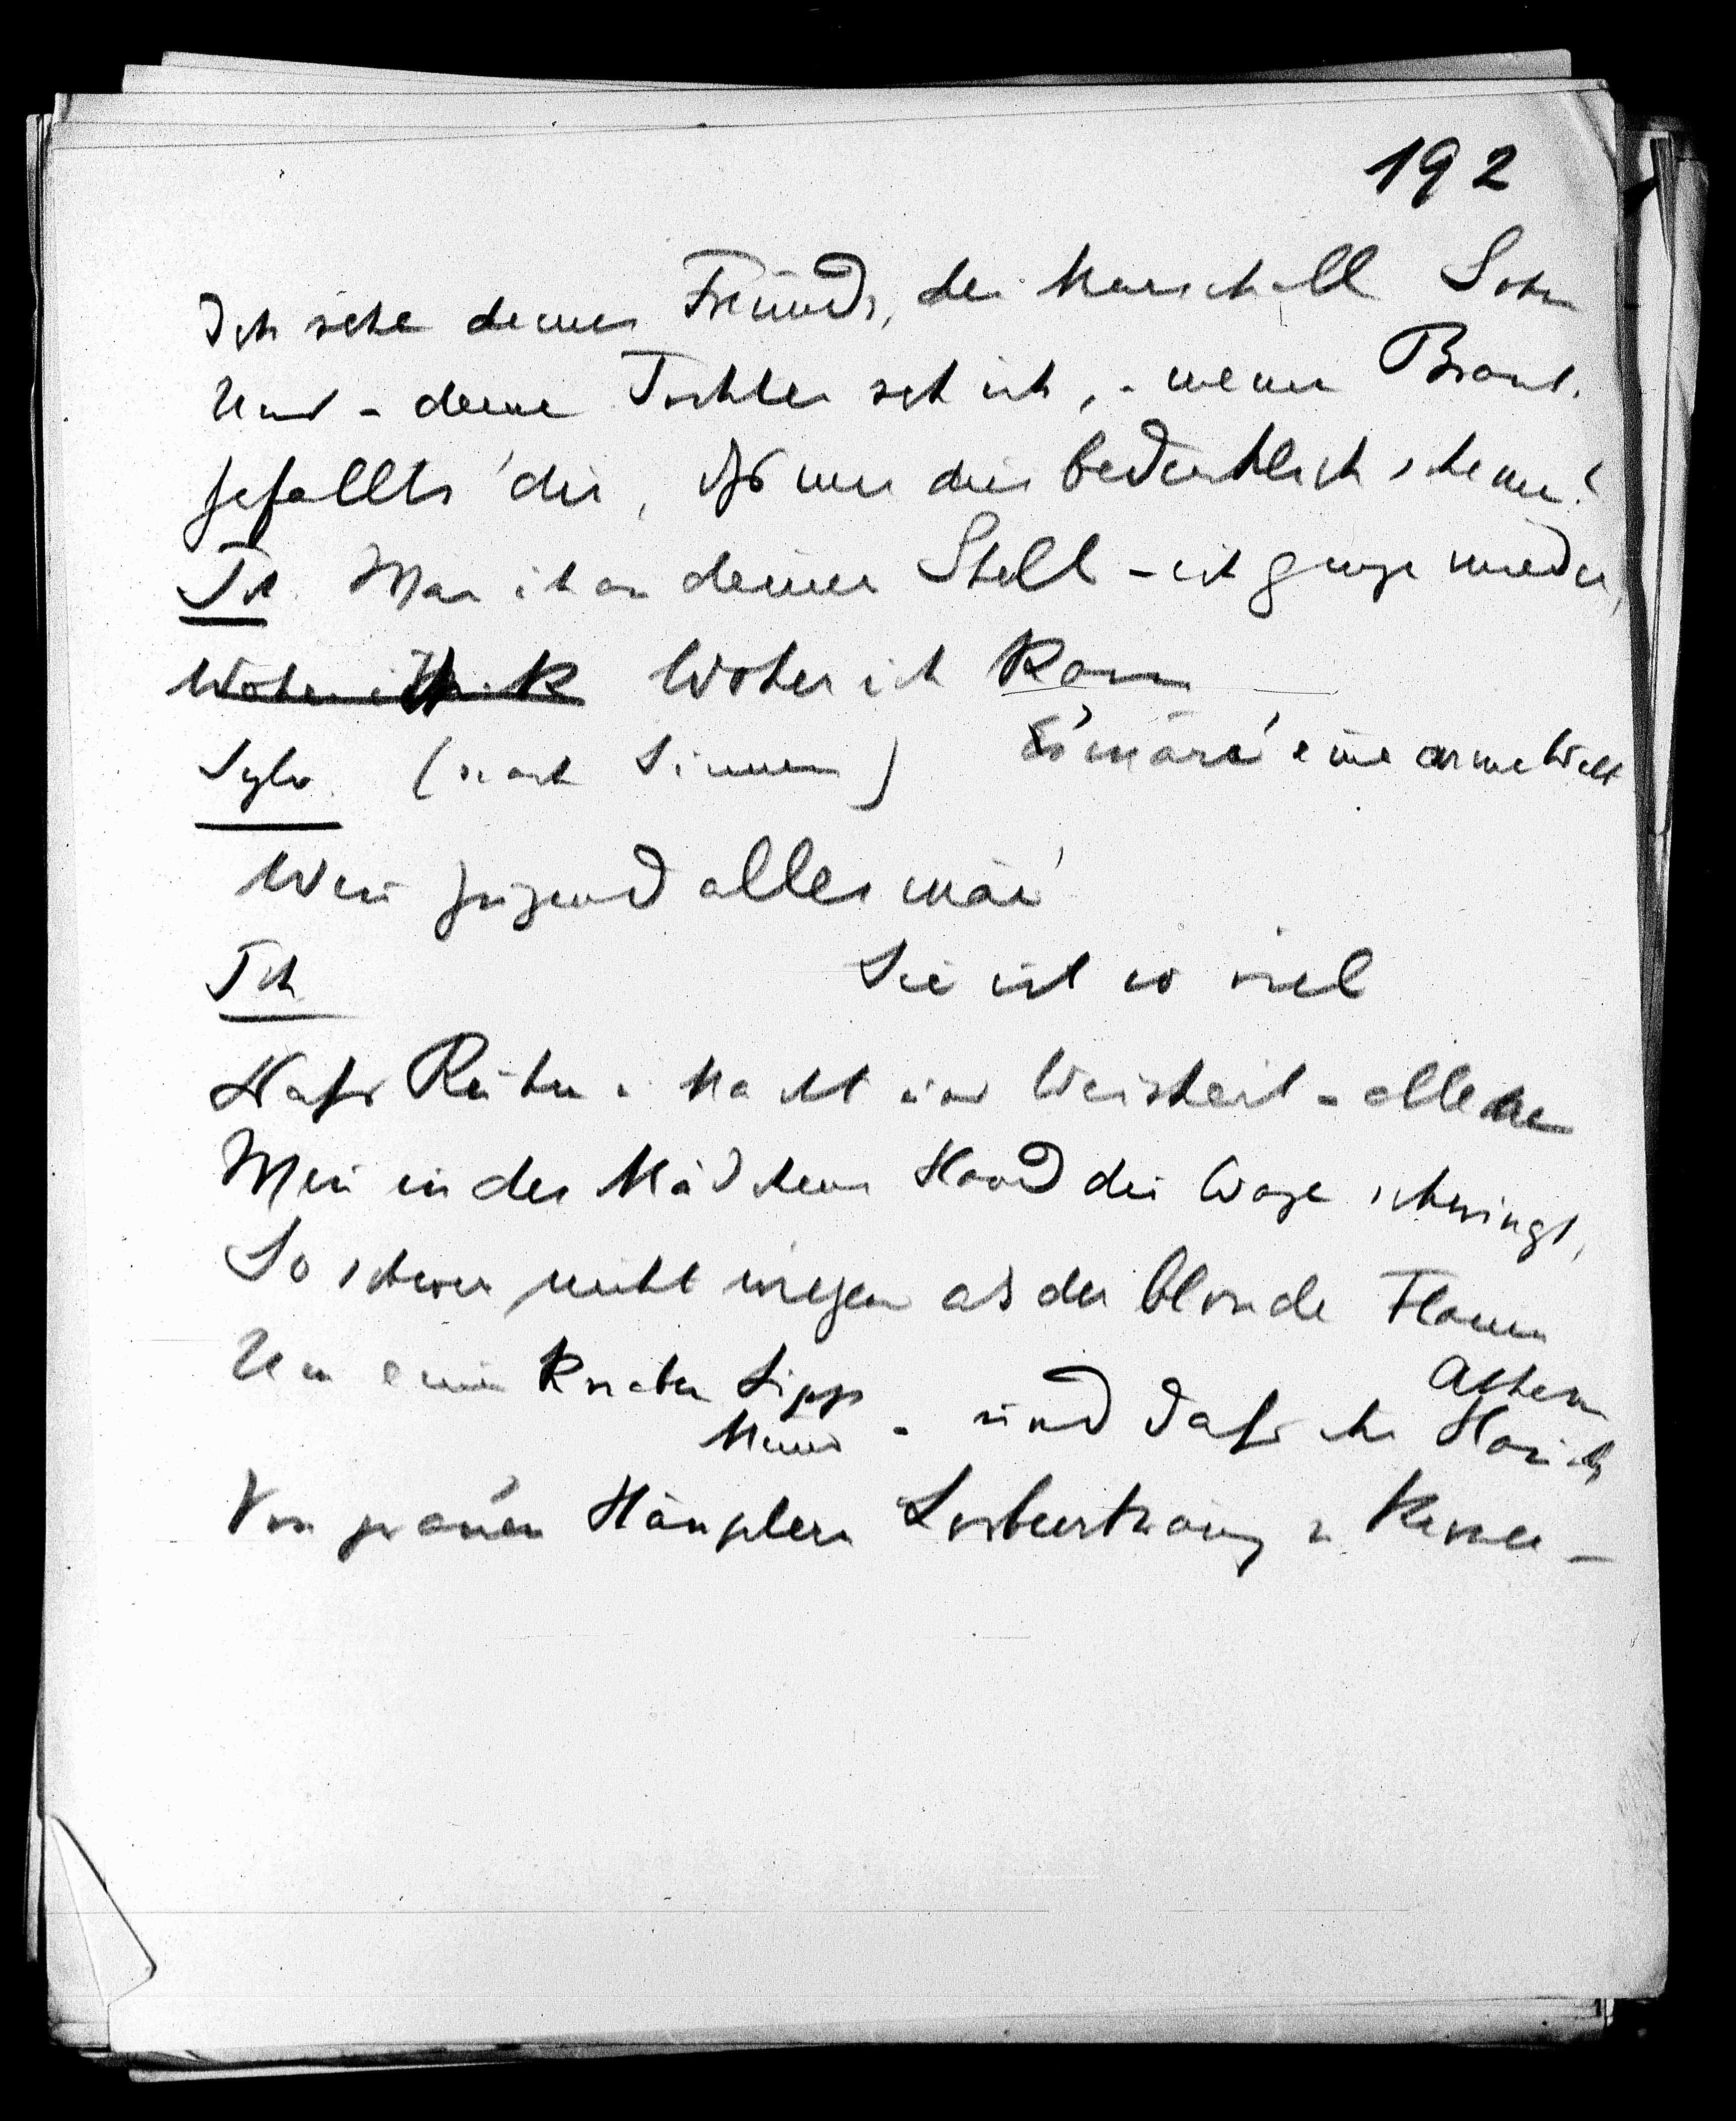 192
Ich sehe deines Freunds, des Marschall Sohn
Und – deine Tochter seh ich, – meine Braut.
Gefällts dir, Ists nur dir bedenklich
Th. Wär ich an deiner Stell – ich ginge wieder,
Woher ich K Woher ich kam —
Sylv. (nach Sinnen) Es wäre eine arme Welt
Wenn Jugend alles wär
Th. Sie ist so viel
Dass Ruhm u. Macht und Weisheit – alle
Wenn in des Mädchens Hand die Wage schwingt,
So schwer nicht wiegen als der blonde Flaum
Um eines Knaben Lippe
Mund – und dass ihr Athem
Hauch
Von grauen Häuptern Lorbeerkranz u. Krone –